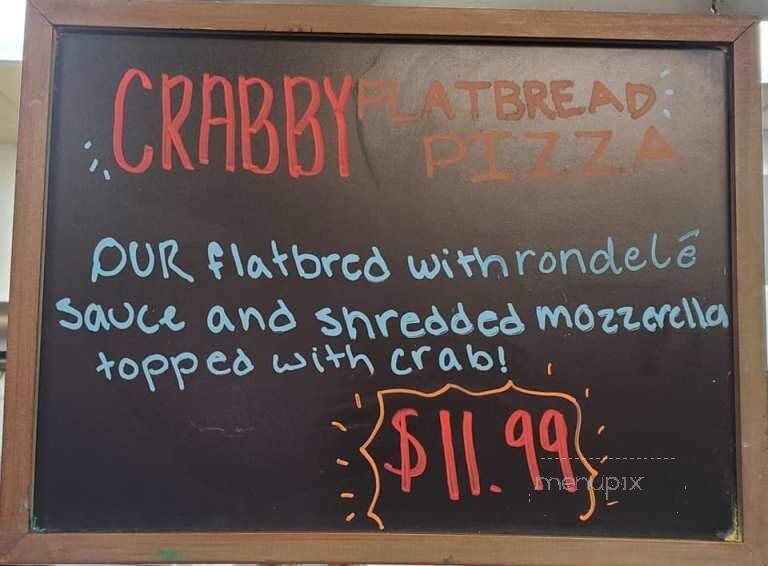 CRABBY FLATBREAD
PIZZA
OUR flatbred with rondelé
sauce and shredded mozzerella
topped with crab!
$11.99
menupix